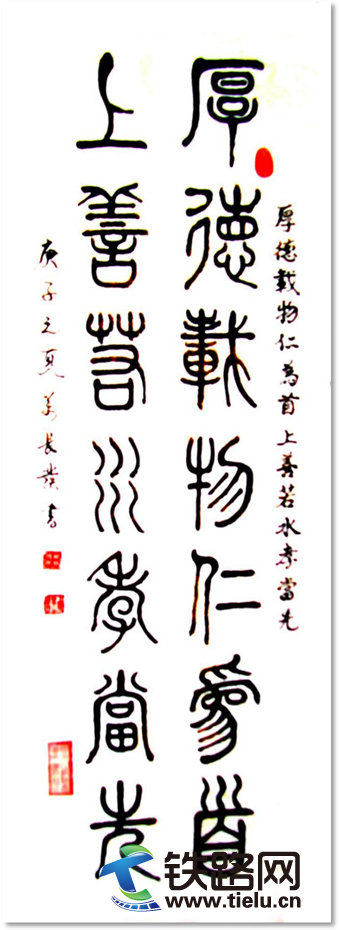 厚德載物仁為首上善若水孝當先
厚德載物仁為首
上善若水孝當先
庚子之夏長書
铁路网
www.tielu.cn